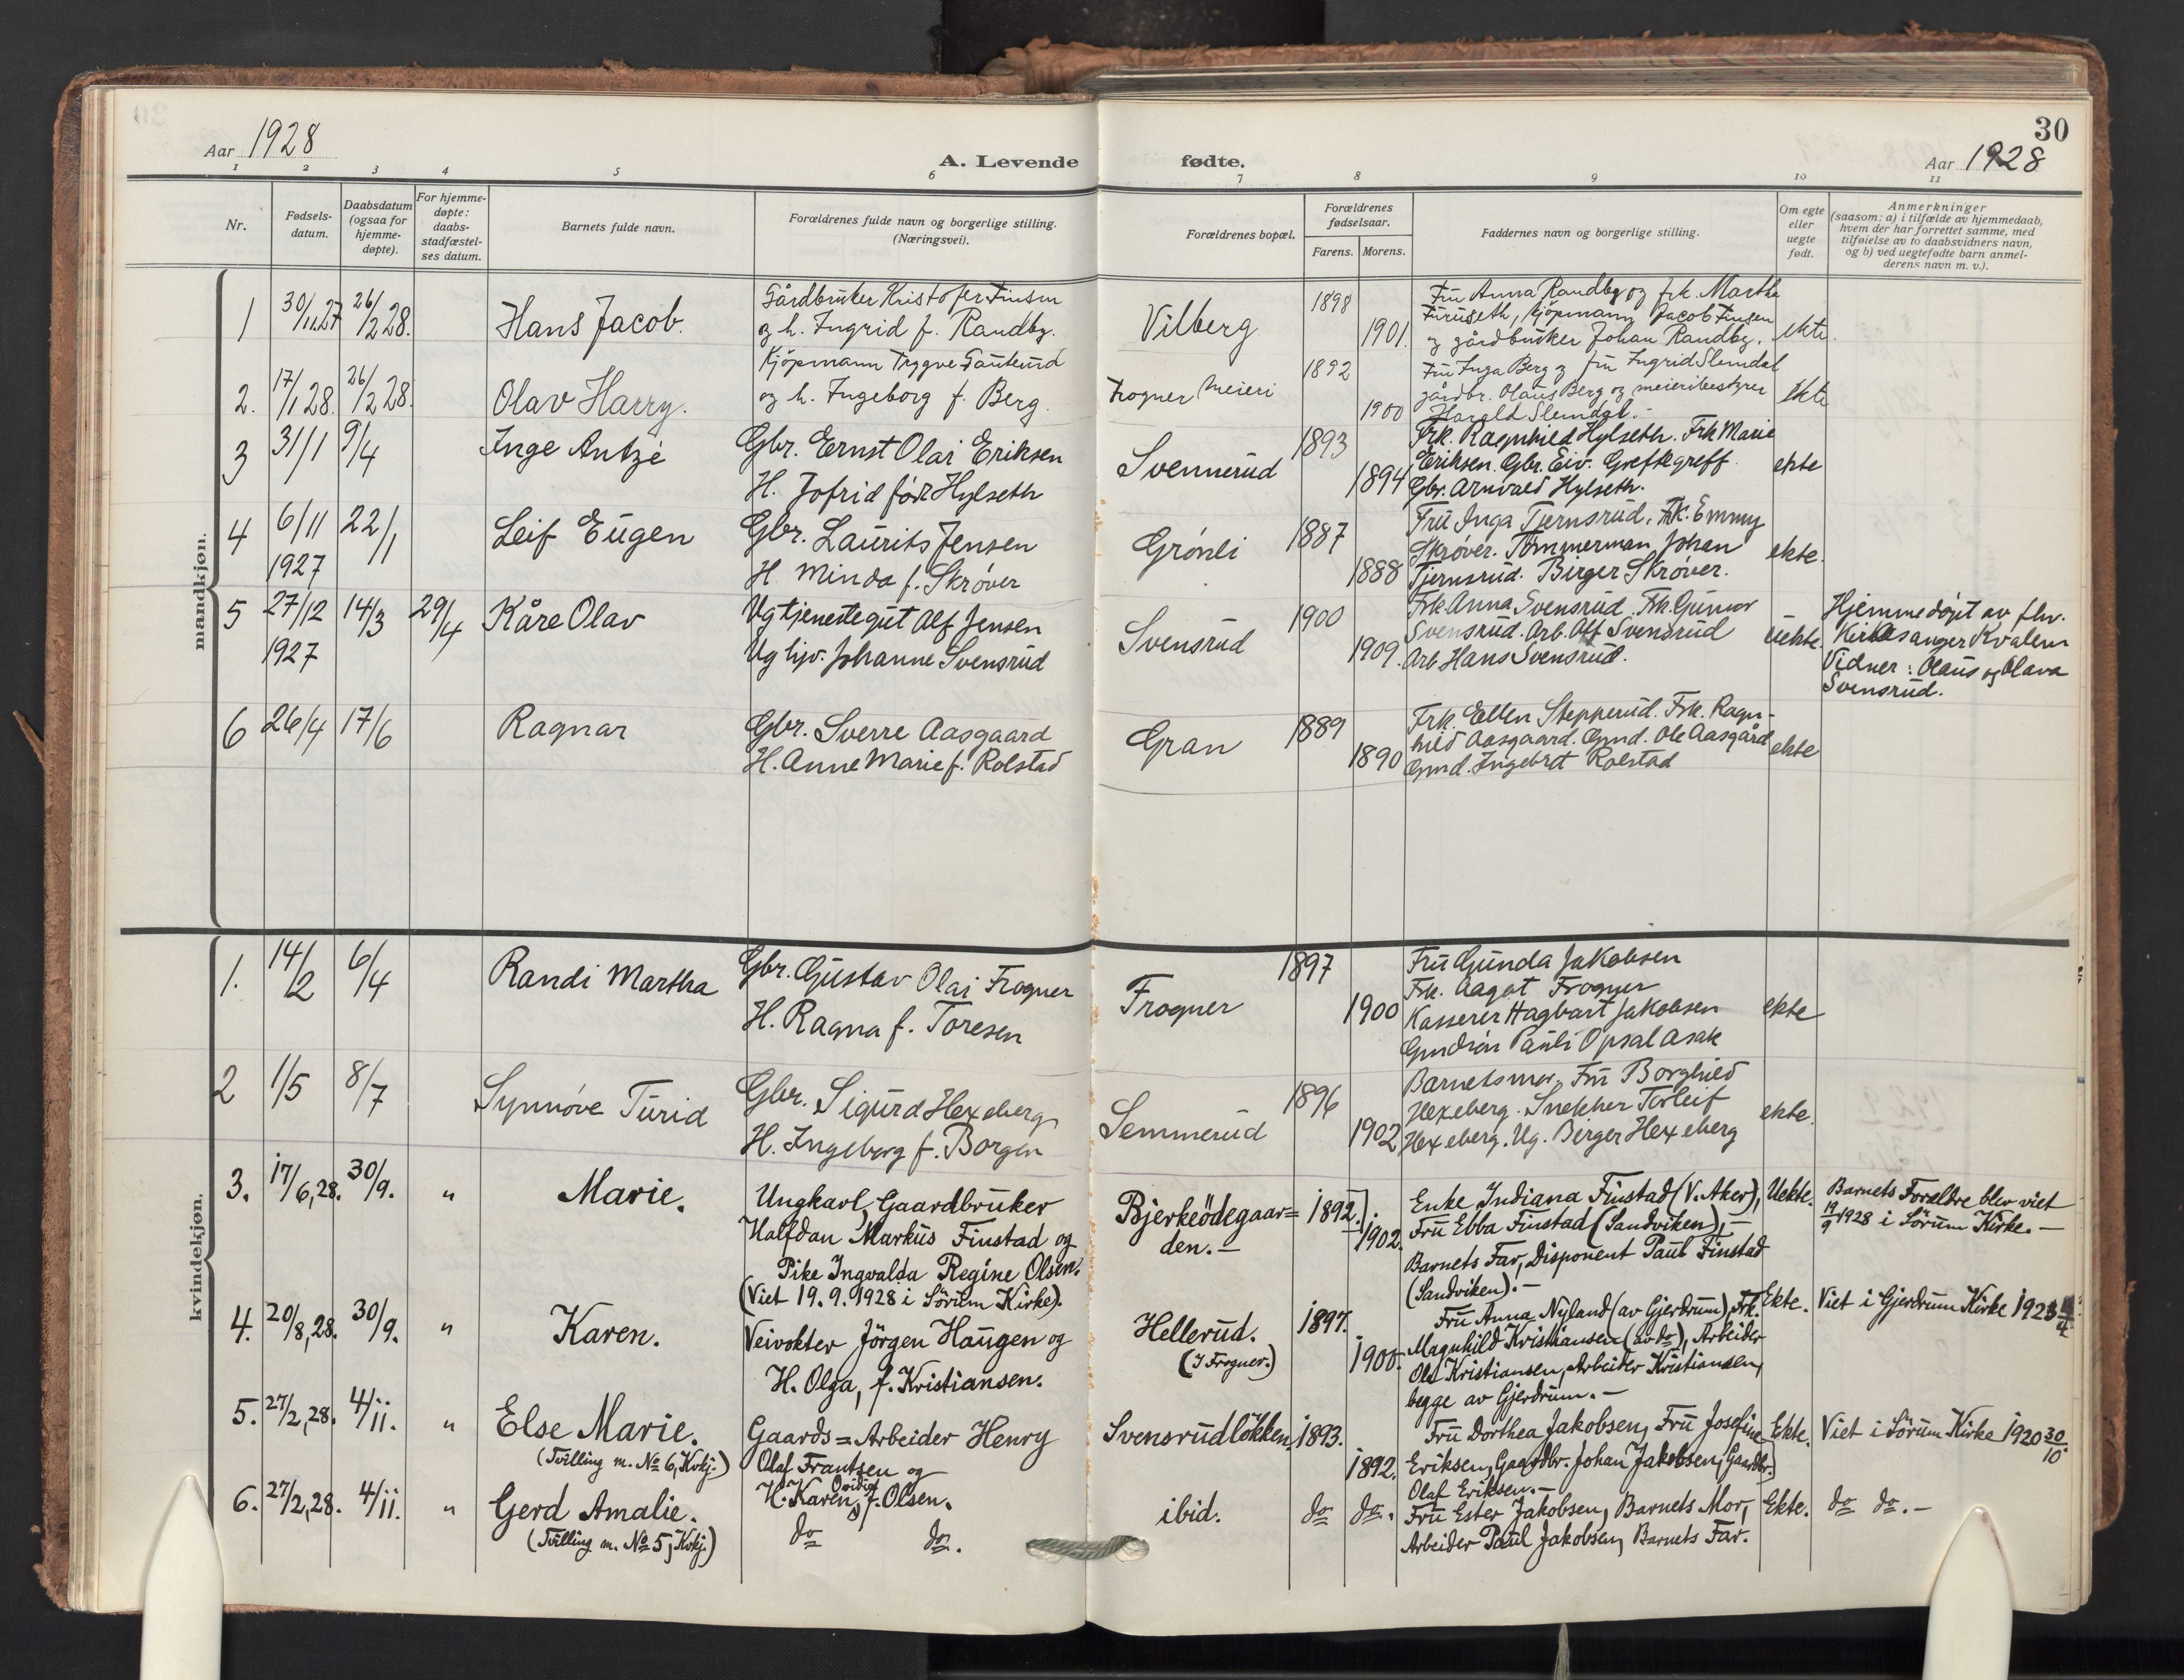 30
Aar 1928
A. Levende fødte.
Aar 1928
1 2 3 4 5 6 7 8 9 10 11
Nr.
Fødsels-
datum.
Daabsdatum
(ogsaa for
hjemme-
døpte).
For hjemme-
døpte:
daabs-
stadfæstel-
ses datum.
Barnets fulde navn.
Forældrenes fulde navn og borgerlige stilling.
(Næringsvei).
Forældrenes bopæl.
Forældrenes
fødselsaar.
Farens. Morens.
Faddernes navn og borgerlige stilling.
Om egte
eller
uegte
født.
Anmerkninger
(saasom: a) i tilfælde av hjemmedaab,
hvem der har forrettet samme, med
tilføielse av to daabsvidners navn,
og b) ved uegtefødte barn anmel-
derens navn m. v.).
mandkjøn.
1
30/11.27
26/2 28.
Hans Jacob.
Gårdbruker Kristofer Finsen
og h. Ingrid f. Randby.
Vilberg
1898
1901.
Fru Anna Randby og frk. Martha
Furuseth, kjöpmann Jacob Finsen
og gårdbruker Johan Randby.
ekte.
2.
17/1 28.
26/2 28.
Olav Harry.
Kjöpmann Trygve Tauterud
og h. Ingeborg f. Berg.
Frogner Meieri
1892
1900
Fru Inga Berg og fru Ingrid Slemdal
gårdbr. Olaus Berg og meieribestyrer
Harald Slemdal.-
ekte
3
31/1
9/4
Inge Antzé
Gbr. Ernst Olai Eriksen
H. Jofrid född Hylseth
Svennerud
1893
1894
Frk. Ragnhild Hylseth. Frk Marie
Eriksen. Gbr. Eiv. Greftegreff.
Gbr. Arnvald Hylseth.
ekte
4
6/11
1927
22/1
Leif Eugen
Gbr. Laurits Jensen
H. Minda f. Skrøver
Grónli
1887
1888
Fru Inga Tjernsrud. Frk. Emmy
Skrøver. Tømmerman Johan
Tjernsrud. Birger Skrøver.
ekte.
5
27/12
1927
14/3
29/4
Kåre Olav
Ug tjenestegut Alf Jensen
Ug hjv. Johanne Svensrud
Svensrud
1900
1909.
Frk. Anna Svensrud. Frk. Gunvor
Svensrud. Arb. Alf Svensrud
Arb Hans Svensrud.
uekte.
Hjemmedøpt av fhv.
Kirkesanger Kvalem
Vidner: Olaus og Olava
Svensrud.
6
26/4
17/6
Ragnar
Gbr. Sverre Aasgaard
H. Anne Marie f. Rolstad
Gran
1889
1890
Frk. Ellen Stepperud. Frk. Ragn-
hild Aasgaard. Gmd. Ole Aasgård
Gmd. Ingebrit Rolstad
ekte
kvindekjøn.
1.
14/2
6/4
Randi Martha
Gbr. Gustav Olai Frogner
H. Ragna f. Toresen
Frogner
1897
1900
Fru Gunda Jakobsen
Frk. Aagot Frogner
Kasserer Hagbart Jakobsen
Pauli Opsal Asak
ekte
2
1/5
8/7
Synnóve Turid
Gbr. Sigurd Hexeberg
H. Ingeborg f. Borgen
Semmerud
1896
1902
Barnets mor, Fru Borghild
Hexeberg. Snekker Torleif
Hexeberg. Ug. Birger Hexeberg
ekte.
3.
17/6, 28.
30/9.
"
Marie.
Ungkarl, Gaardbruker
Halfdan Markus Finstad og
Pike Ingvalda Regine Olsen.
(Viet 19. 9. 1928 i Sörum Kirke).
Bjerkeödegaar=
den.-
1892.
1902.
Enke Indiana Finstad (V. Aker),
Fru Ebba Finstad (Sandviken),-
Barnets Far, Disponent Paul Finstad
(Sandviken).-
Uekte.
Barnets Foreldre blev viet
19/9 1928 i Sörum Kirke.-
4.
20/8, 28.
30/9.
"
Karen.
Veivokter Jörgen Haugen og
H. Olga, f. Kristiansen.
Hellerud.
(I Frogner.)
1897.
1900.
Fru Anna Nyland (av Gjerdrum), Frk.
Magnhild Kristiansen (av do), Arbeider
Ole Kristiansen, Arbeider Kristiansen,
begge av Gjerdrum.-
Ekte.
Viet i Gjerdrum Kirke 1923
5.
27/2, 28.
4/11.
"
Else Marie.
(Tvilling m. No 6, Kvkj.)
Gaards=Arbeider Henry
Olaf Frantsen og
H. Karen Ovidia, f. Olsen.
Svensrudlökken,
1893.
1892.
Fru Dorthea Jakobsen, Fru Josefine
Eriksen, Gaardbr. Johan Jakobsen, Gaardbr.
Olaf Eriksen.-
Ekte.
Viet i Sörum Kirke 1920 30/10
6.
27/2, 28.
4/11.
"
Gerd Amalie.
(Tvilling m. No 5, Kvkj.)
do do.
ibid.
do do.
Fru Ester Jakobsen, Barnets Mor,
Arbeider Paul Jakobsen, Barnets Far.
Ekte.
do do.-